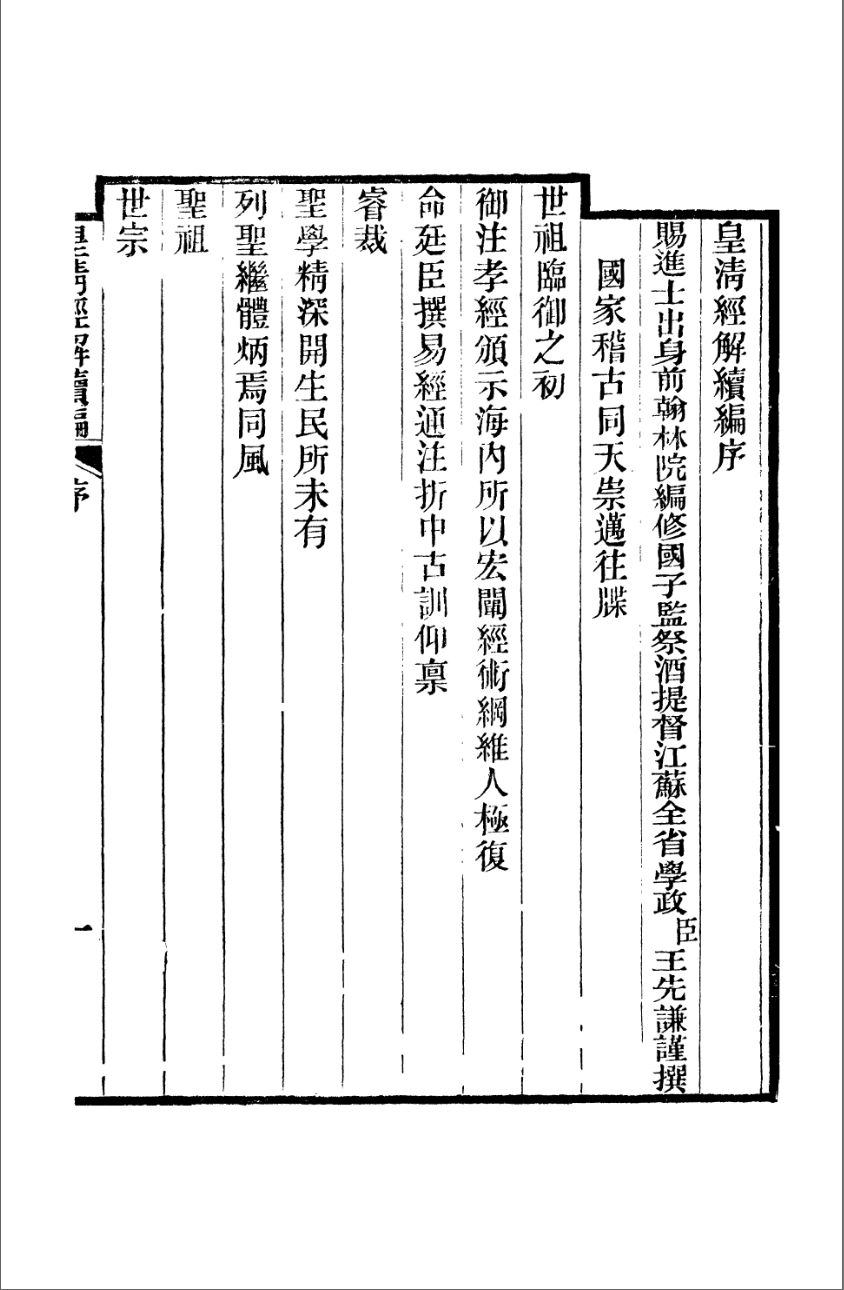 皇清經解續編序
賜進士出身前翰林院編修國子監祭酒提督江蘇全省學政臣王先謙謹撰
國家稽古同天祟邁往牒
世祖臨御之初
御注孝經頒示海內所以宏闡經術綱維人極復
命廷臣撰易經通注折中古訓仰稟
睿裁
聖學精深開生民所未有
列聖繼體炳焉同風
聖祖
世宗
皇清經解續編
序
一